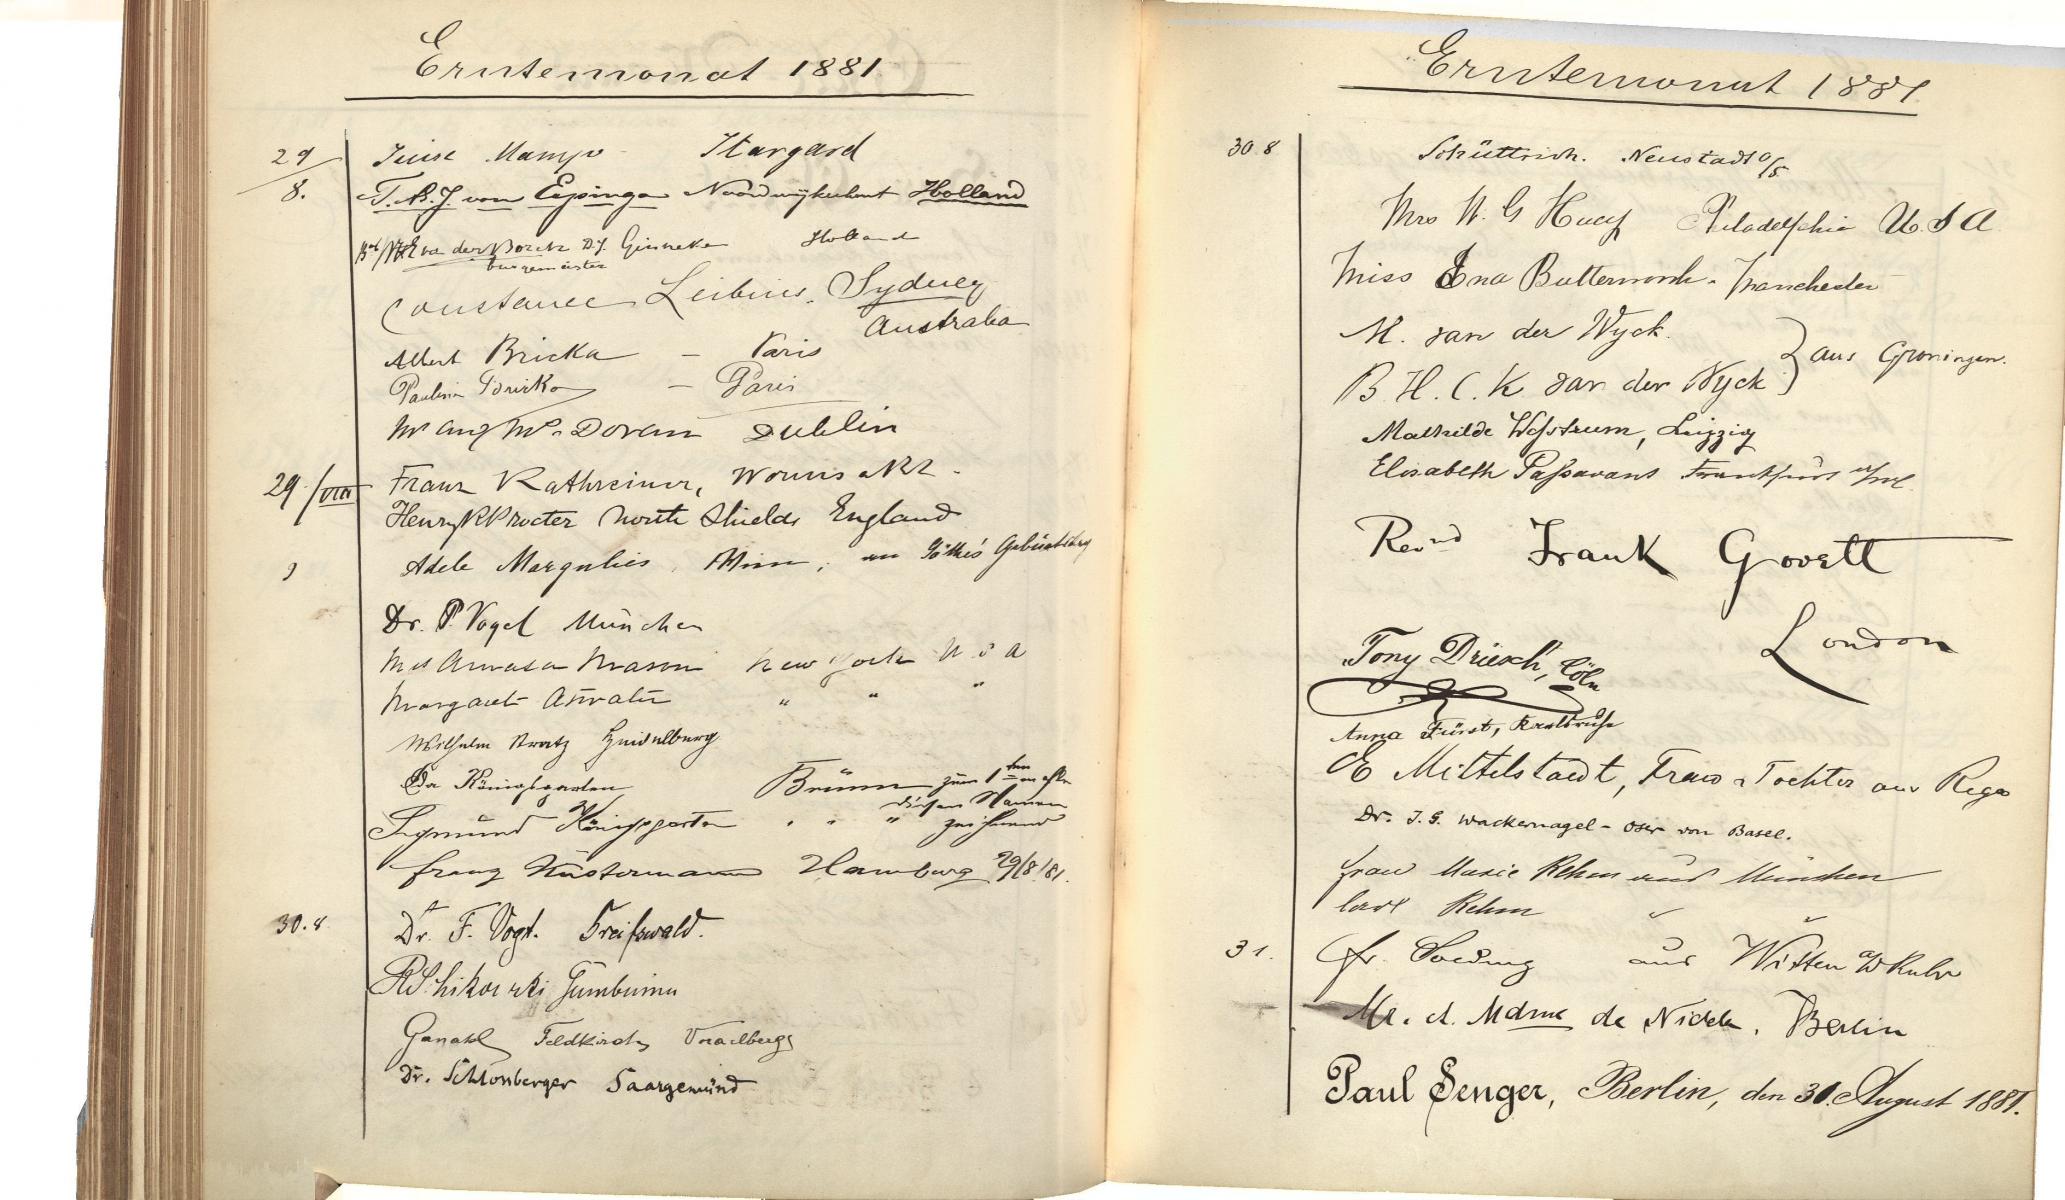 Erntemonat 1881
29/8. Stargard
T. B. J. van Eysinga Noordwijkerhout Holland
van der Borch D. J. Ginneken Holland
burgemeister
Constance Leibius, Sydney
Australia
Albert Bricka – Paris
Pauline Bricka – Paris
Mr and Mrs Doran Dublin
29/VIII Franz Kathreiner, Worms a/Rh.
Henry R Procter North Shields England
Adele Margulies, Wien, an Göthe's Geburtstag
Dr. P. Vogel München
Mason New York U S A
Margaret " " "
Wilhelm Heidelberg
Dr Königsgarten Brünn zum 1ten
diesen Namen
Sigmund Königsgarten " " " zeichnend
Franz Küstermann Hamburg 29/8/81.
30.8 Dr. F. Vogt. Greifswald.
Gumbinnen
Ganahl Feldkirch Vorarlberg
Dr. Schlonberger Saargemünd
Erntemonat 1881
30.8 Schüttrich. Neustadt o/S
Mrs W. G Philadelphia U. S A
Miss Ena Butterworth. Manchester
M. van der Wyck.
aus Groningen.
B. H. C. K van der Wyck
Mathilde Weßtrum, Leipzig
Elisabeth Paßavant Frankfurt a/M.
Revnd Frank Govett
London
Tony Driesch, Cöln
Anna Fürst, Karlsruhe
E Mittelstaedt, Frau u Tochter aus Riga
Dr. J. G. Wackernagel - Oser von Basel.
Frau Marie Rehm aus München
Carl Rehm " "
31. Fr. Soeding aus Witten a/d Ruhr
Mr. et. Mdme de Berlin
Paul Senger, Berlin, den 31. August 1881.